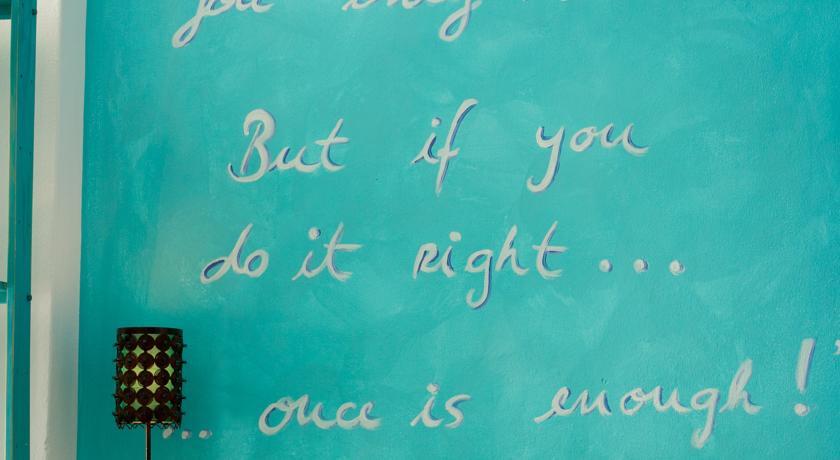 you only
But if you
do it right...
... once is enough!